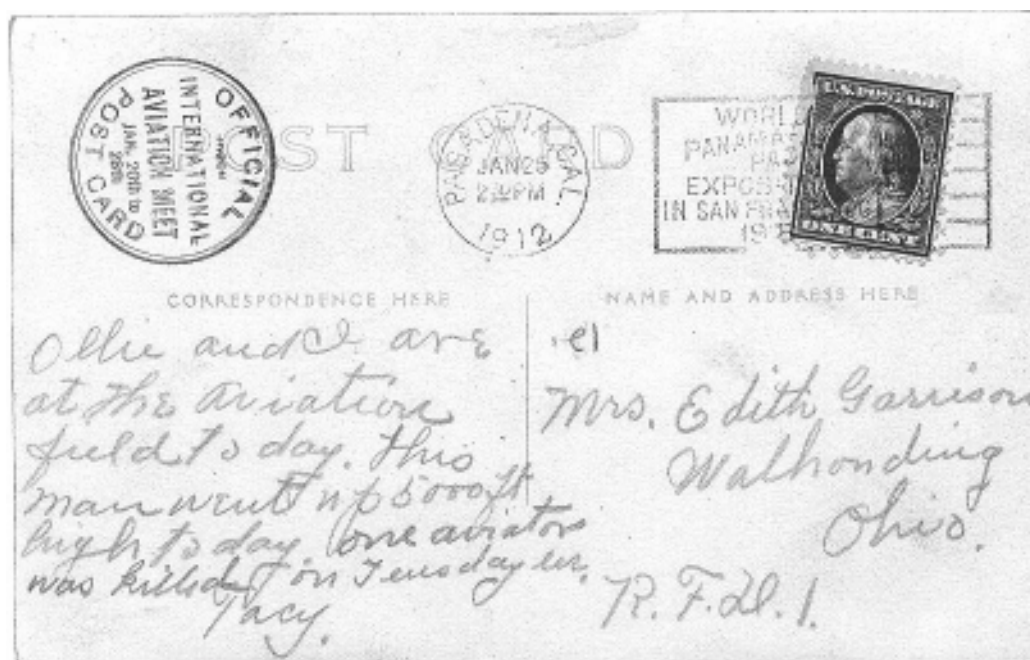 OFFICIAL
INTERNATIONAL
AVIATION MEET
JAN. 20th to
28th
POST CARD
POST CARD
PASADENA, CAL.
JAN 25
PM
1912
WORL
PANAMA
PA
EXPOS
IN SAN FRA
19
U.S. POSTAGE
ONE CENT
CORRESPONDENCE HERE
NAME AND ADDRESS HERE
Ollie and I are
at the aviation
field to day. this
man went up 5000 ft
high to day. one aviator
was killed on Teusday
Tacy.
el
Mrs. Edith Garrison
Walhonding
Ohio.
R.F.D. 1.